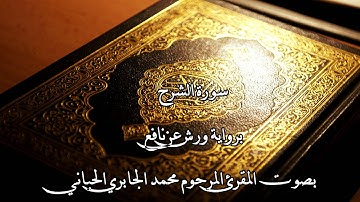 سورة الشرح
برواية ورش عن نافع
بصوت المقرئ المرحوم محمد الجابري الحياني